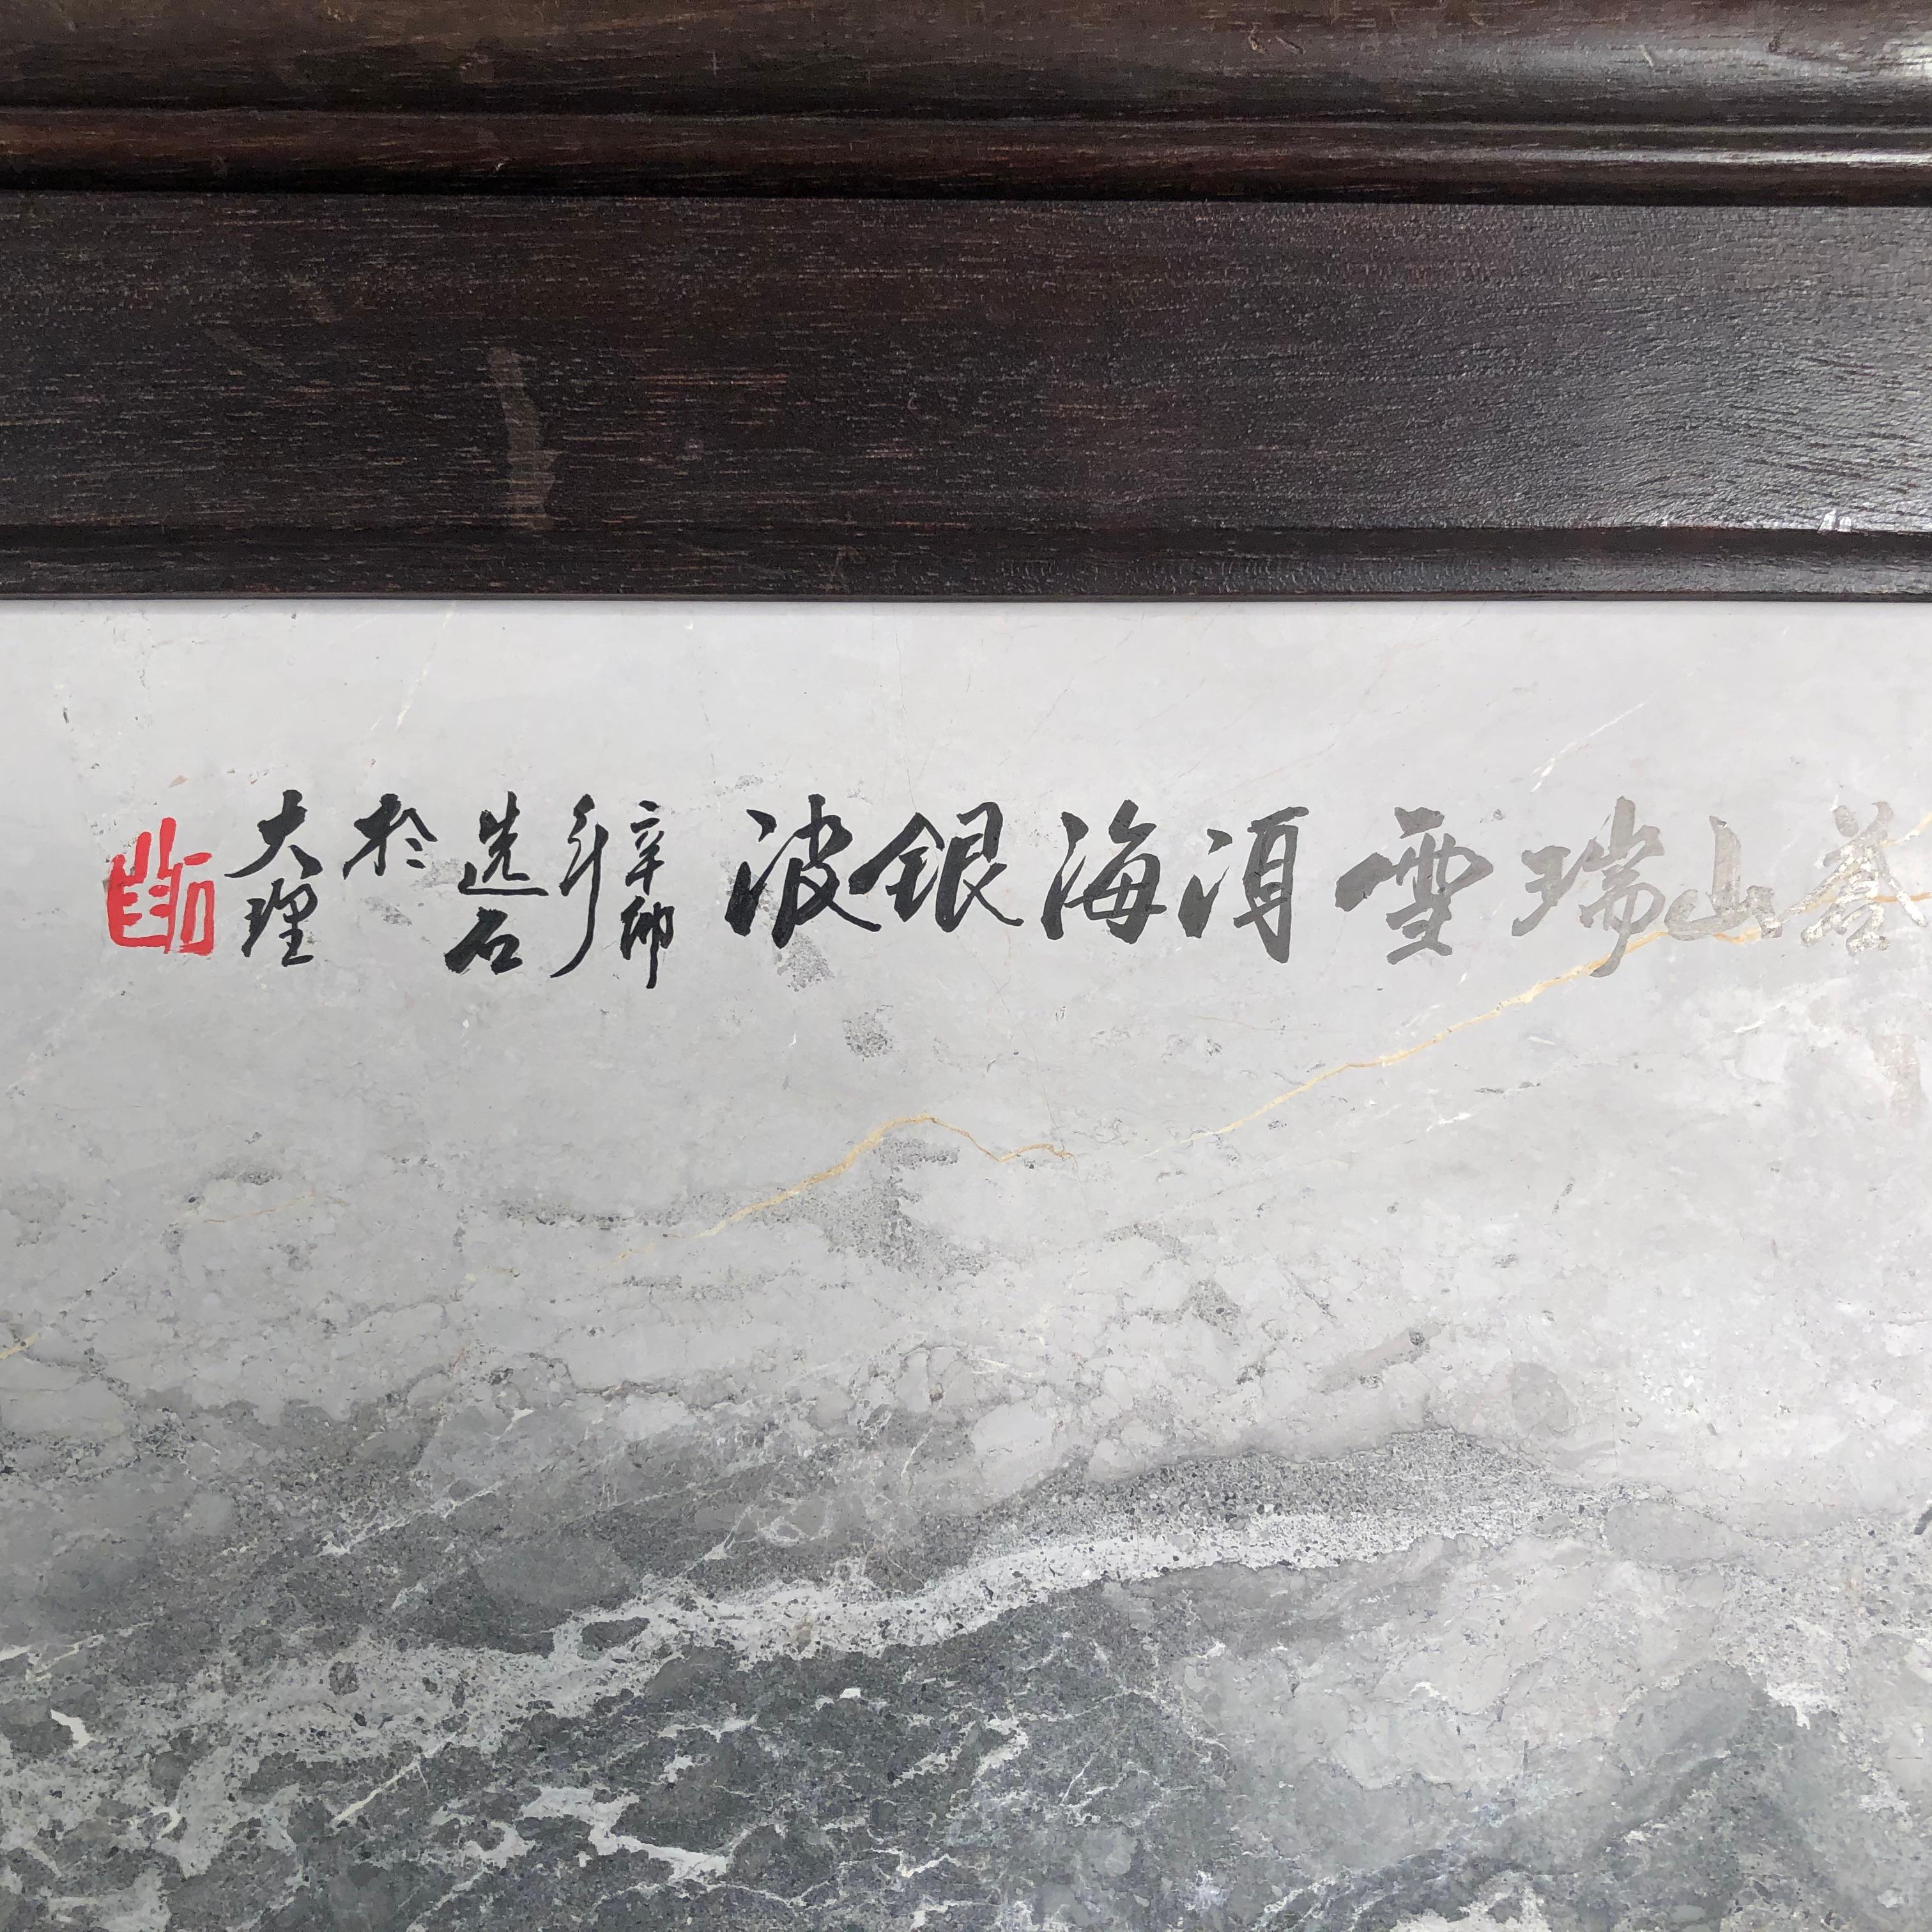 蒼山瑞雪洱海銀波
辛卯年選石於大理